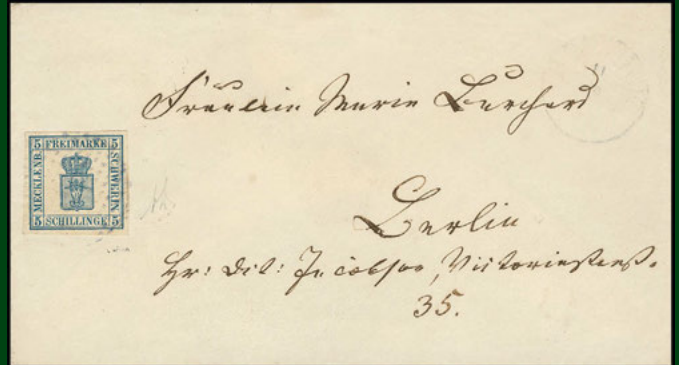 5 FREIMARKE 5
MECKLENB.
SCHWERIN.
5 SCHILLINGE 5
Fräulein Marie Burchard
Berlin
Jacobson, Victoriastraß.
35.